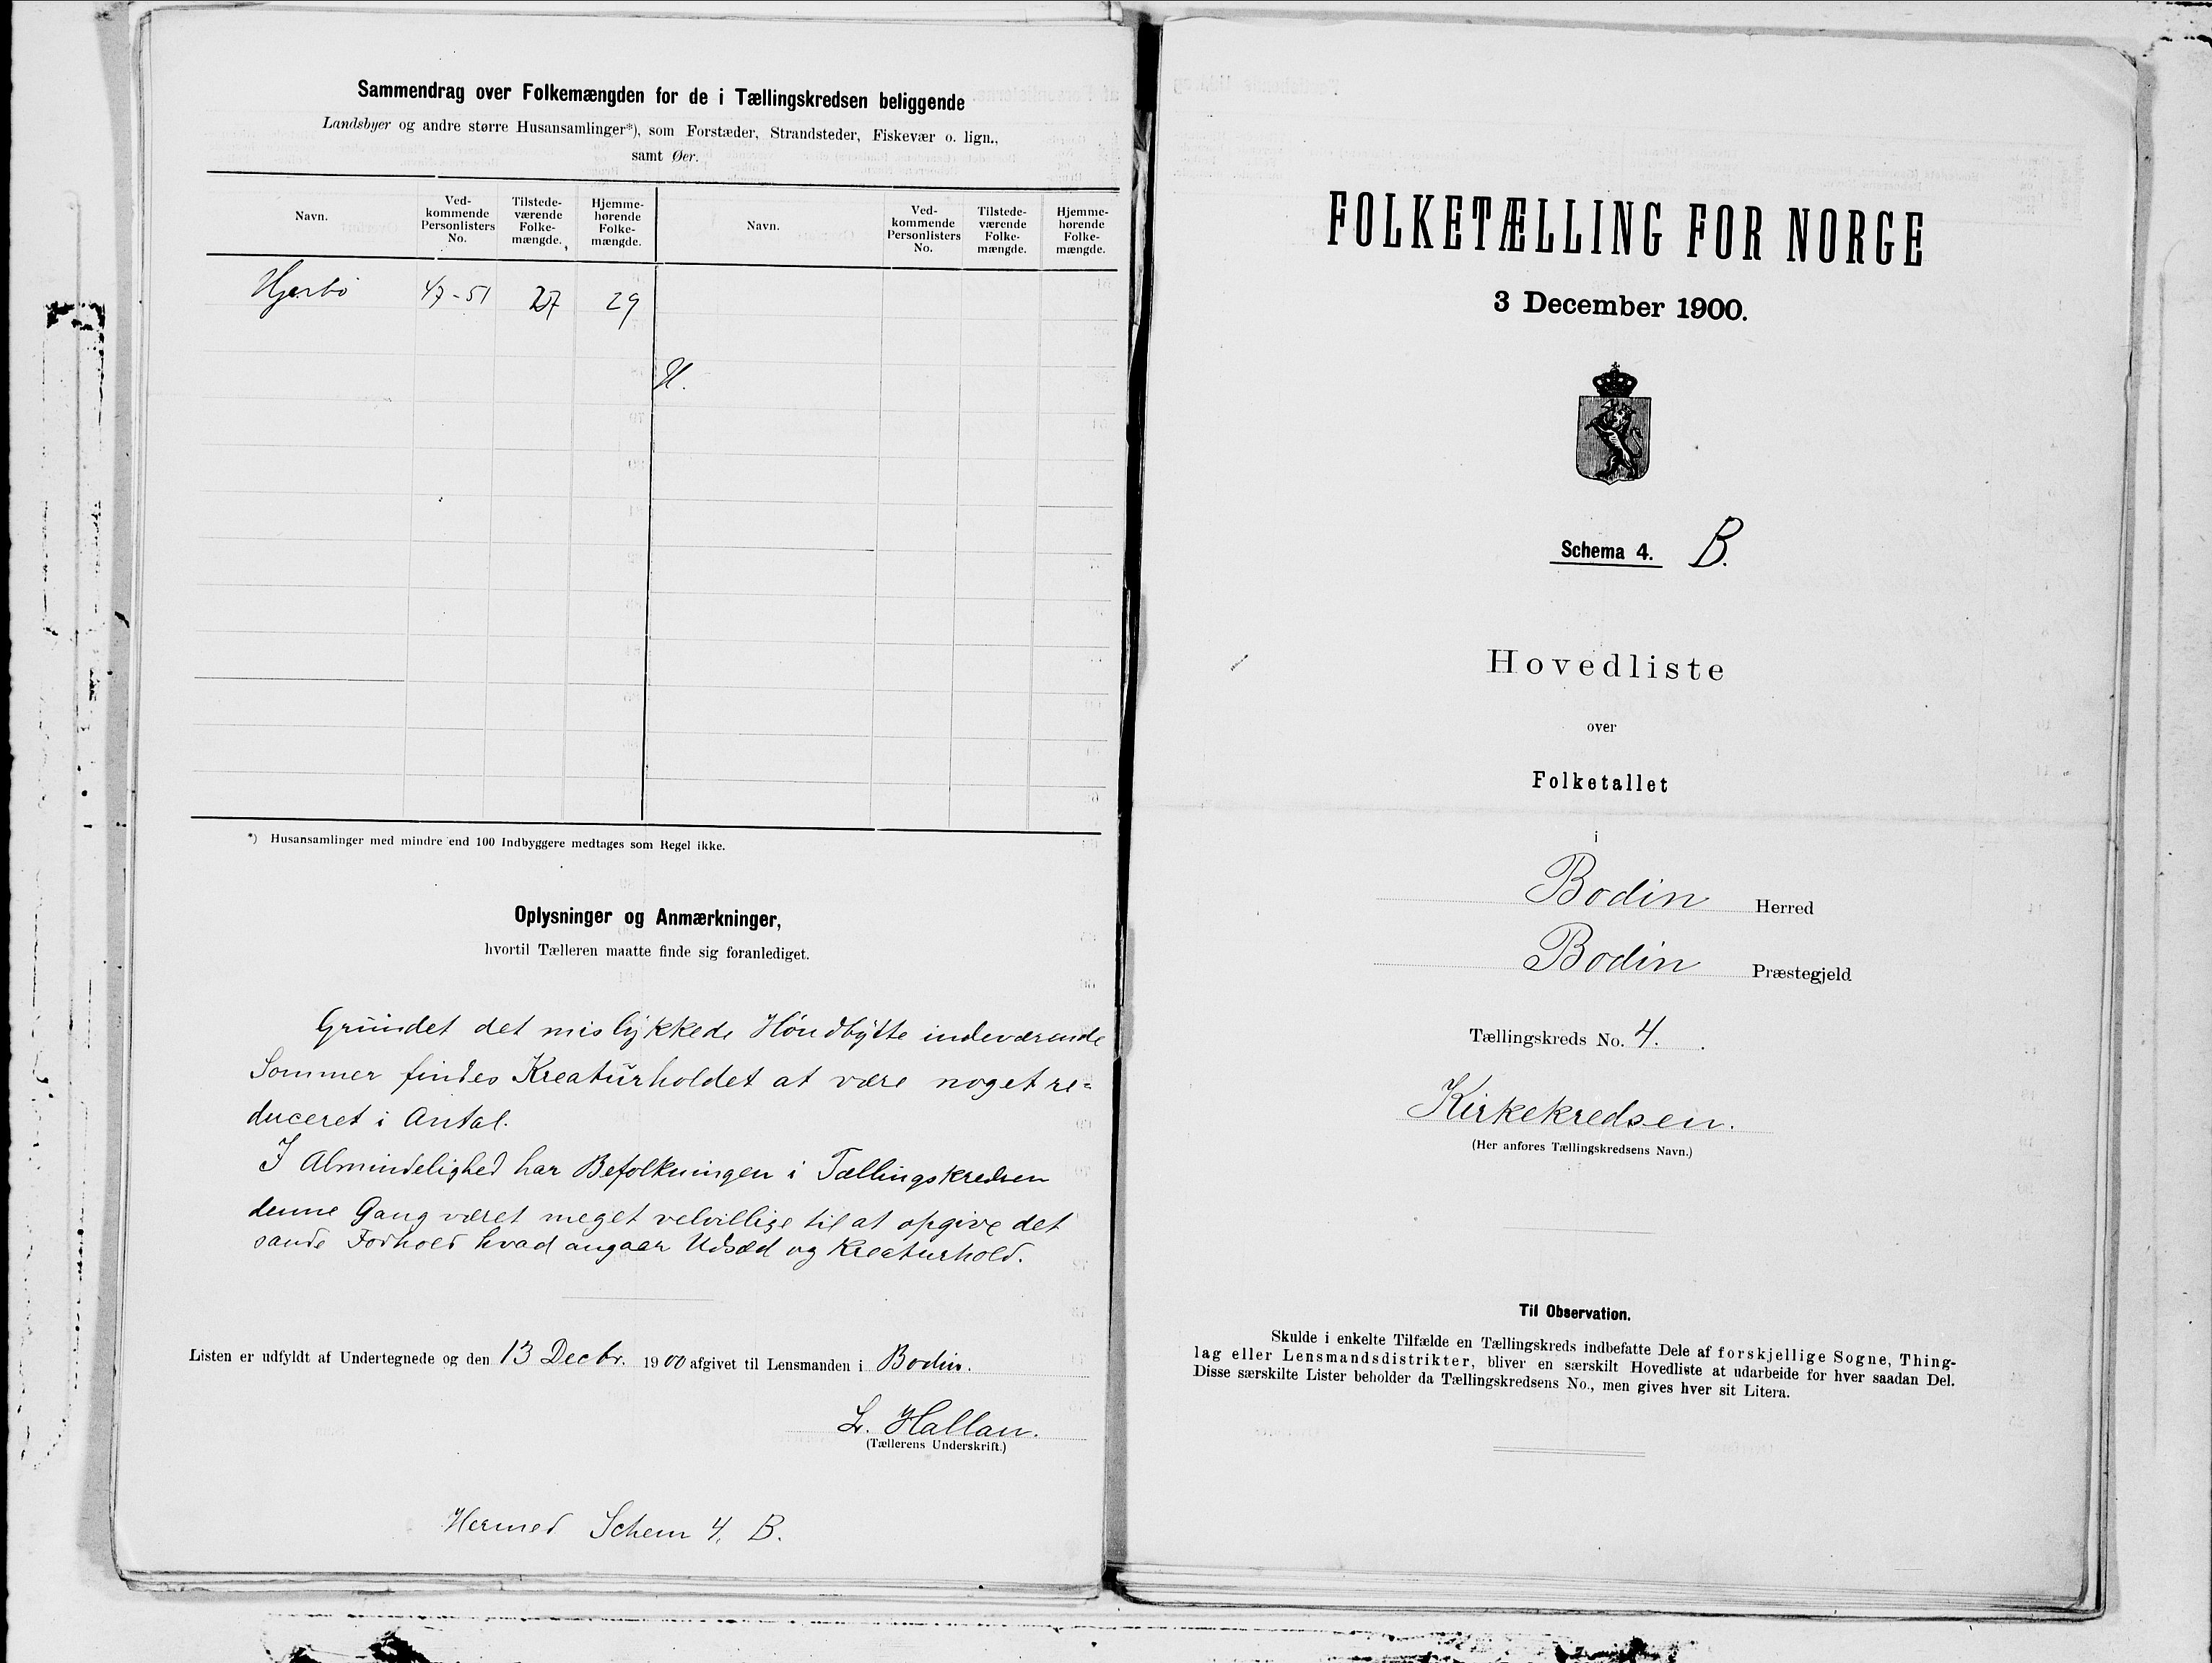 Sammendrag over Folkemængden for de i Tællingskredsen beliggende
Landsbyer og andre større Husansamlinger*), som Forstæder, Strandsteder, Fiskevær o. lign.,
samt Øer.
Navn. Ved-kommende Personlisters No. Tilstede-værende Folke-mængde. Hjemme-hørende Folke-mængde. Navn. Ved-kommende Personlisters No. Tilstede-værende Folke-mængde. Hjemme-hørende Folke-mængde.
Hjertø 47-51 27 29
H.
*) Husansamlinger med mindre end 100 Indbyggere medtages som Regel ikke.
Oplysninger og Anmærkninger,
hvortil Tælleren maatte finde sig foranlediget.
Grundet det mislykkede Höudbytte indeværende
Sommer findes Kreaturholdet at være noget re=
duceret i Antal.
I Almindelighed har Befolkningen i Tællingskredsen
denne Gang været meget velvillige til at opgive det
sande Forhold hvad angaar Udsæd og Kreaturhold.
Listen er udfyldt af Undertegnede og den 13 Decbr. 1900 afgivet til Lensmanden i Bodin.
L. Hallan.
(Tællerens Underskrift.)
Hermed Schem 4. B.
FOLKETÆLLING FOR NORGE
3 December 1900.
Schema 4. B.
Hovedliste
over
Folketallet
i
Bodin Herred
Bodin Præstegjeld
Tællingskreds No. 4.
Kirkekredsen.
(Her anføres Tællingskredsens Navn.)
Til Observation.
Skulde i enkelte Tilfælde en Tællingskreds indbefatte Dele af forskjellige Sogne, Thing-
lag eller Lensmandsdistrikter, bliver en særskilt Hovedliste at udarbeide for hver saadan Del.
Disse særskilte Lister beholder da Tællingskredsens No., men gives hver sit Litera.